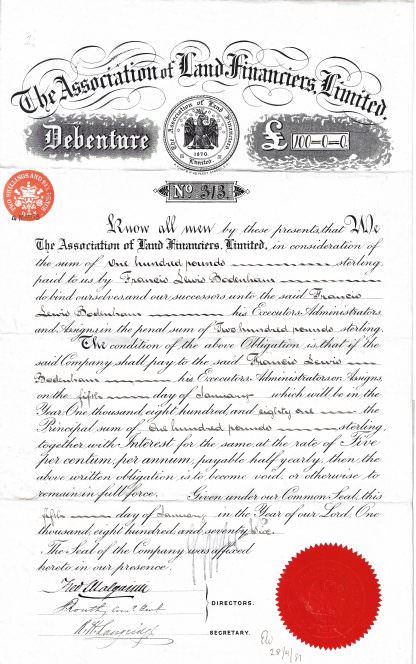 The Association of Land Financiers, Limited.
Debenture
The Association of Land Financiers
1870
Limited.
£ 100=0=0.
TWO SHILLINGS AND SIX PENCE
No. 313.
Know all men by these presents, that We
The Association of Land Financiers, Limited, in consideration of
the sum of One hundred pounds sterling
paid to us by Francis Lewis Bodenham
do bind ourselves, and our successors unto the said Francis
Lewis Bodenham his Executors, Administrators
and Assigns, in the penal sum of Two hundred pounds sterling.
The condition of the above Obligation is, that if the
said Company shall pay to the said Francis Lewis
Bodenham his Executors, Administrators, or Assigns,
on the fifth day of January which will be in the
Year One thousand, eight hundred, and eighty one the
Principal sum of One hundred pounds sterling
together with Interest for the same, at the rate of Five
per centum, per annum, payable half yearly, then the
above written obligation is to become void, or otherwise to
remain in full force. Given under our Common Seal, this
fifth day of January in the Year of our Lord, One
thousand, eight hundred, and seventy
The Seal of the Company was affixed
hereto in our presence.
DIRECTORS.
SECRETARY.
28/9/81